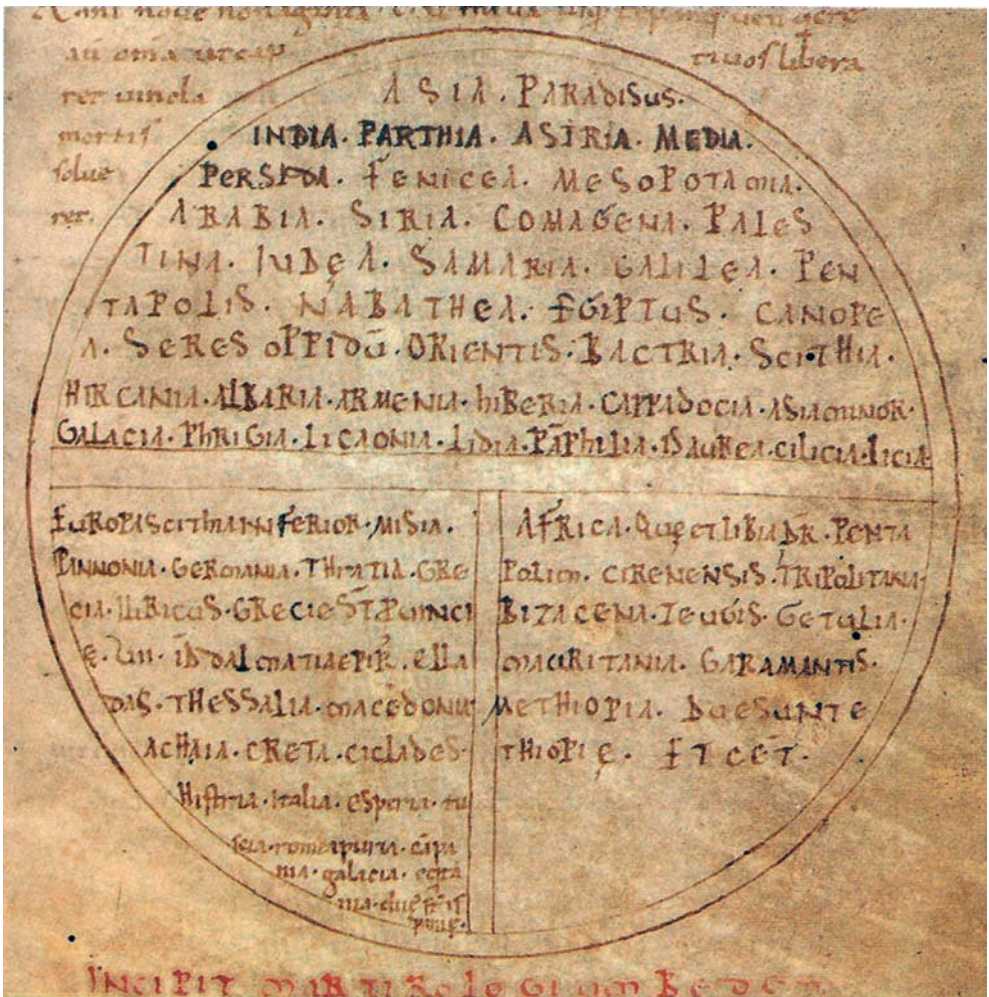 au omia ut cap
tiuos libera
ret uincla
mortis
solue
ret.
ASIA. PARADISUS.
INDIA. PARTHIA. ASIRIA. MEDIA.
PERSIDA. FENICEA. MESOPOTAMIA.
ARABIA. SIRIA. COMAGENA. PALES
TINA. IUDEA. SAMARIA. GALILEA. PEN
TAPOLIS. NABATHEA. EGIPTUS. CANOPE
A. SERES OPPIDŪ. ORIENTIS. BACTRIA. SCITHIA.
HIRCANIA. ALBARIA. ARMENIA. HIBERIA. CAPPADOCIA. ASIA MINOR.
GALACIA. PHRIGIA. LICAONIA. LIDIA. PĀPHILIA. ISAUREA. CILICIA. LICIA
EUROPA SCITHIA INFERIOR. MISIA.
PANNONIA. GERMANIA. THRATIA. GRE
CIA. ILIRICUS. GRECIE ST PUINCI
Ę. VII. DALMATIA EPIR. ELLA
DAS. THESSALIA. MACEDONIA
ACHAIA. CRETA. CICLADES.
Histria. italia. esperia. tu
scia.
galacia.
AFRICA. QUE ET LIBIA DR. PENTA
POLIM. CIRENENSIS. TRIPOLITANA.
BIZACENA. ZEUGIS. GETULIA.
MAURITANIA. GARAMANTIS.
METHIOPIA. DUE SUNT E
THIOPIĘ. ET CET.
INCIPIT MARTIROLOGIUM BEDE